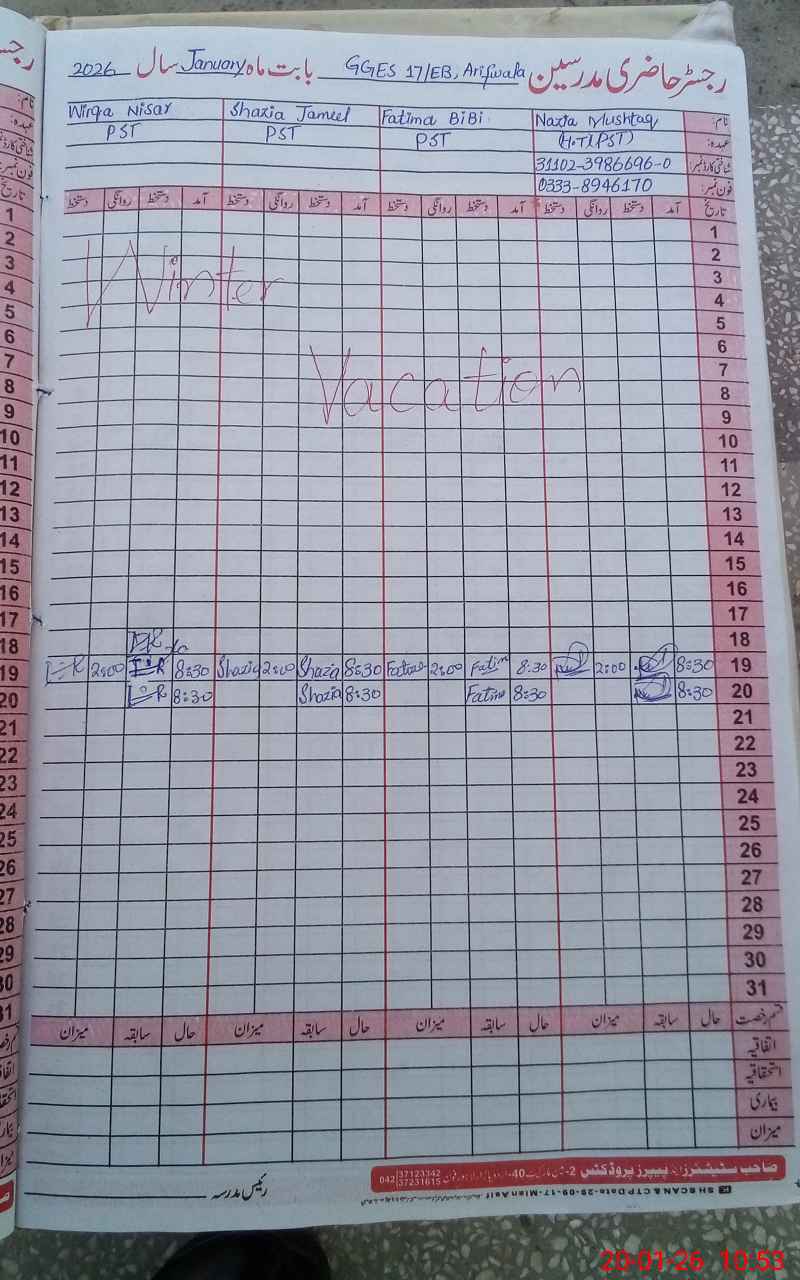 رجسٹر حاضری مدرسین GGES 17/EB, Arifwala بابت ماہ January سال 2026
نام: Nazia Mushtaq Fatima BiBi Shazia Jameel Wirqa Nisar
عہدہ: (H.T(PST) PST PST PST
شناختی کارڈ نمبر: 31102-3986696-0
فون نمبر: 0333-8946170
تاریخ آمد دستخط روانگی دستخط آمد دستخط روانگی دستخط آمد دستخط روانگی دستخط آمد دستخط روانگی دستخط
1
2
3
Winter
4
5
6
7
Vacation
8
9
10
11
12
13
14
15
16
17
18
19 8:30 2:00 8:30 Fatima 2:00 Fatima 8:30 Shazia 2:00 Shazia 8:30 2:00
20 8:30 8:30 Fatima 8:30 Shazia 8:30
21
22
23
24
25
26
27
28
29
30
31
قسم رخصت حال سابقہ میزان حال سابقہ میزان حال سابقہ میزان حال سابقہ میزان
اتفاقیہ
استحقاقیہ
بیماری
میزان
صاحب سٹیشنرز اینڈ پیپرز پروڈکٹس 042 37123342 37231615
رئیس مدرسہ
SH SCAN & CTP Date-29-09-17-Mian Asif
20-01-26 10:53